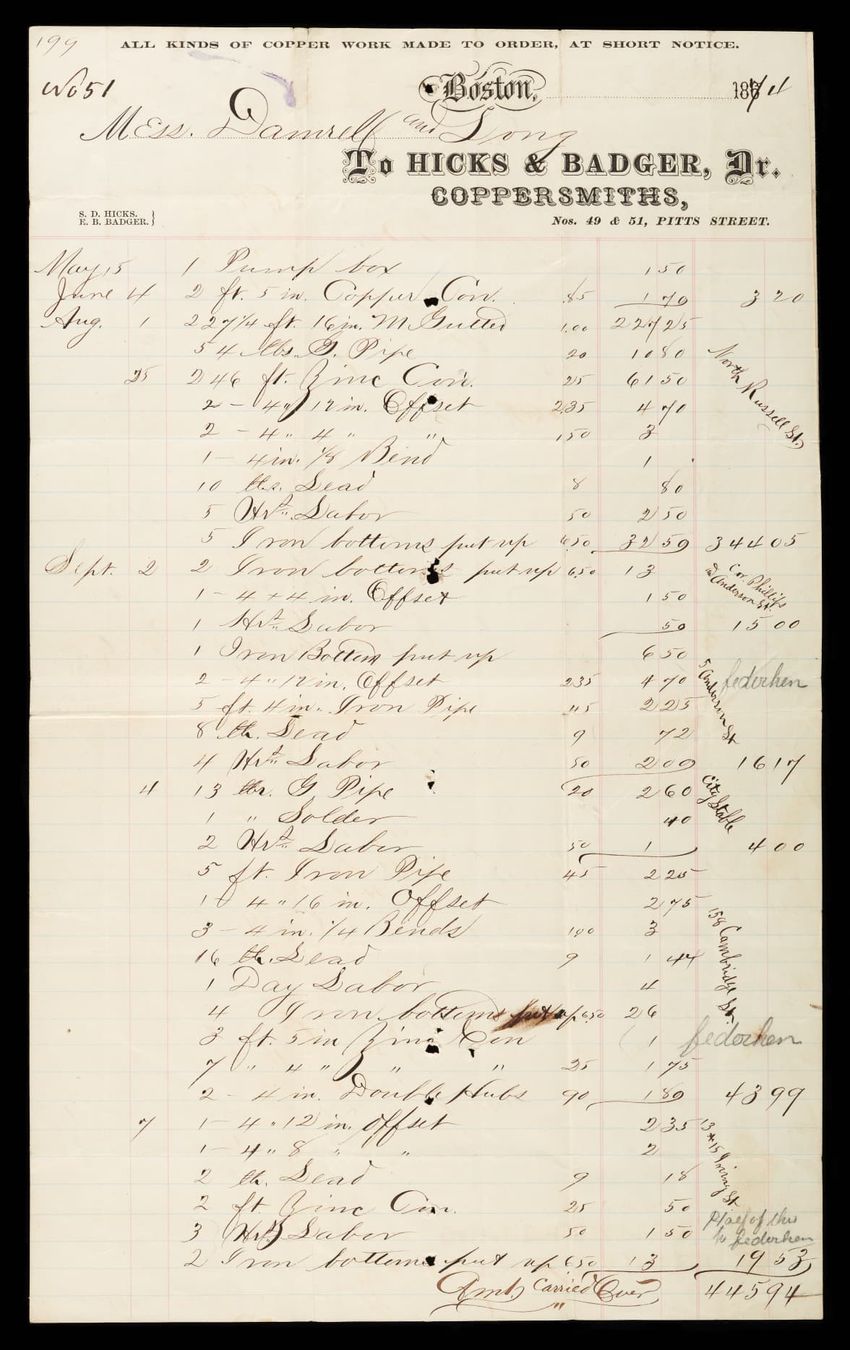 199
ALL KINDS OF COPPER WORK MADE TO ORDER, AT SHORT NOTICE.
No 51
Boston, 1874
Mess. Damrell and Long
To HICKS & BADGER, Dr.
COPPERSMITHS,
S. D. HICKS.
E. B. BADGER.
Nos. 49 & 51, PITTS STREET.
May 15 1 Pump box 1 50
June 4 2 ft. 5 in. Copper Con. 85 1 70 3 20
Aug. 1 227 1/4 ft. 16 in. M Gutter 1.00 227 25
54 lbs. G. Pipe 20 10 80
North Russell St.
25 246 ft. Zinc Con. 25 61 50
2 - 4 " 12 in. Offset 2.35 4 70
2 - 4 " 4 " " 1 50 3
1 - 4 in. 1/8 Bend 1
10 lbs. Lead 8 80
5 Hrs. Labor 50 2 50
5 Iron bottoms put up 6.50 32 50 344 05
Sept. 2 2 Iron bottoms put up 6.50 13
Cor. Phillips & Anderson St.
1 - 4 + 4 in. Offset 1 50
1 Hrs. Labor 50 15 00
1 Iron Bottom put up 6 50
2 - 4 " 12 in. Offset 2 35 4 70
5 Anderson St
federhen
5 ft. 4 in. Iron Pipe 45 2 25
8 lb. Lead 9 72
4 Hrs. Labor 50 2 00 16 17
4 13 lbs. G. Pipe 20 2 60
City Stable
1 " Solder 40
2 Hrs. Labor 50 1 4 00
5 ft. Iron Pipe 45 2 25
1 - 4 " 16 in. Offset 2 75
158 Cambridge St.
3 - 4 in. 1/4 Bends 1 00 3
16 lb. Lead 9 1 44
1 Day Labor 4
4 Iron bottoms put up 6.50 26
3 ft. 5 in Zinc Con 1
federhen
7 " 4 " " " 25 1 75
2 - 4 in. Double Hubs 90 1 80 43 99
7 1 - 4 " 12 in. Offset 2 35
13 & 15 Irving St.
1 - 4 " 8 " " 2
2 lb. Lead 9 18
2 ft Zinc Con. 25 50
3 Hrs. Labor 50 1 50
of this to federhen
2 Iron bottoms put up 6.50 13 19 53
Amt. Carried Over 445 94